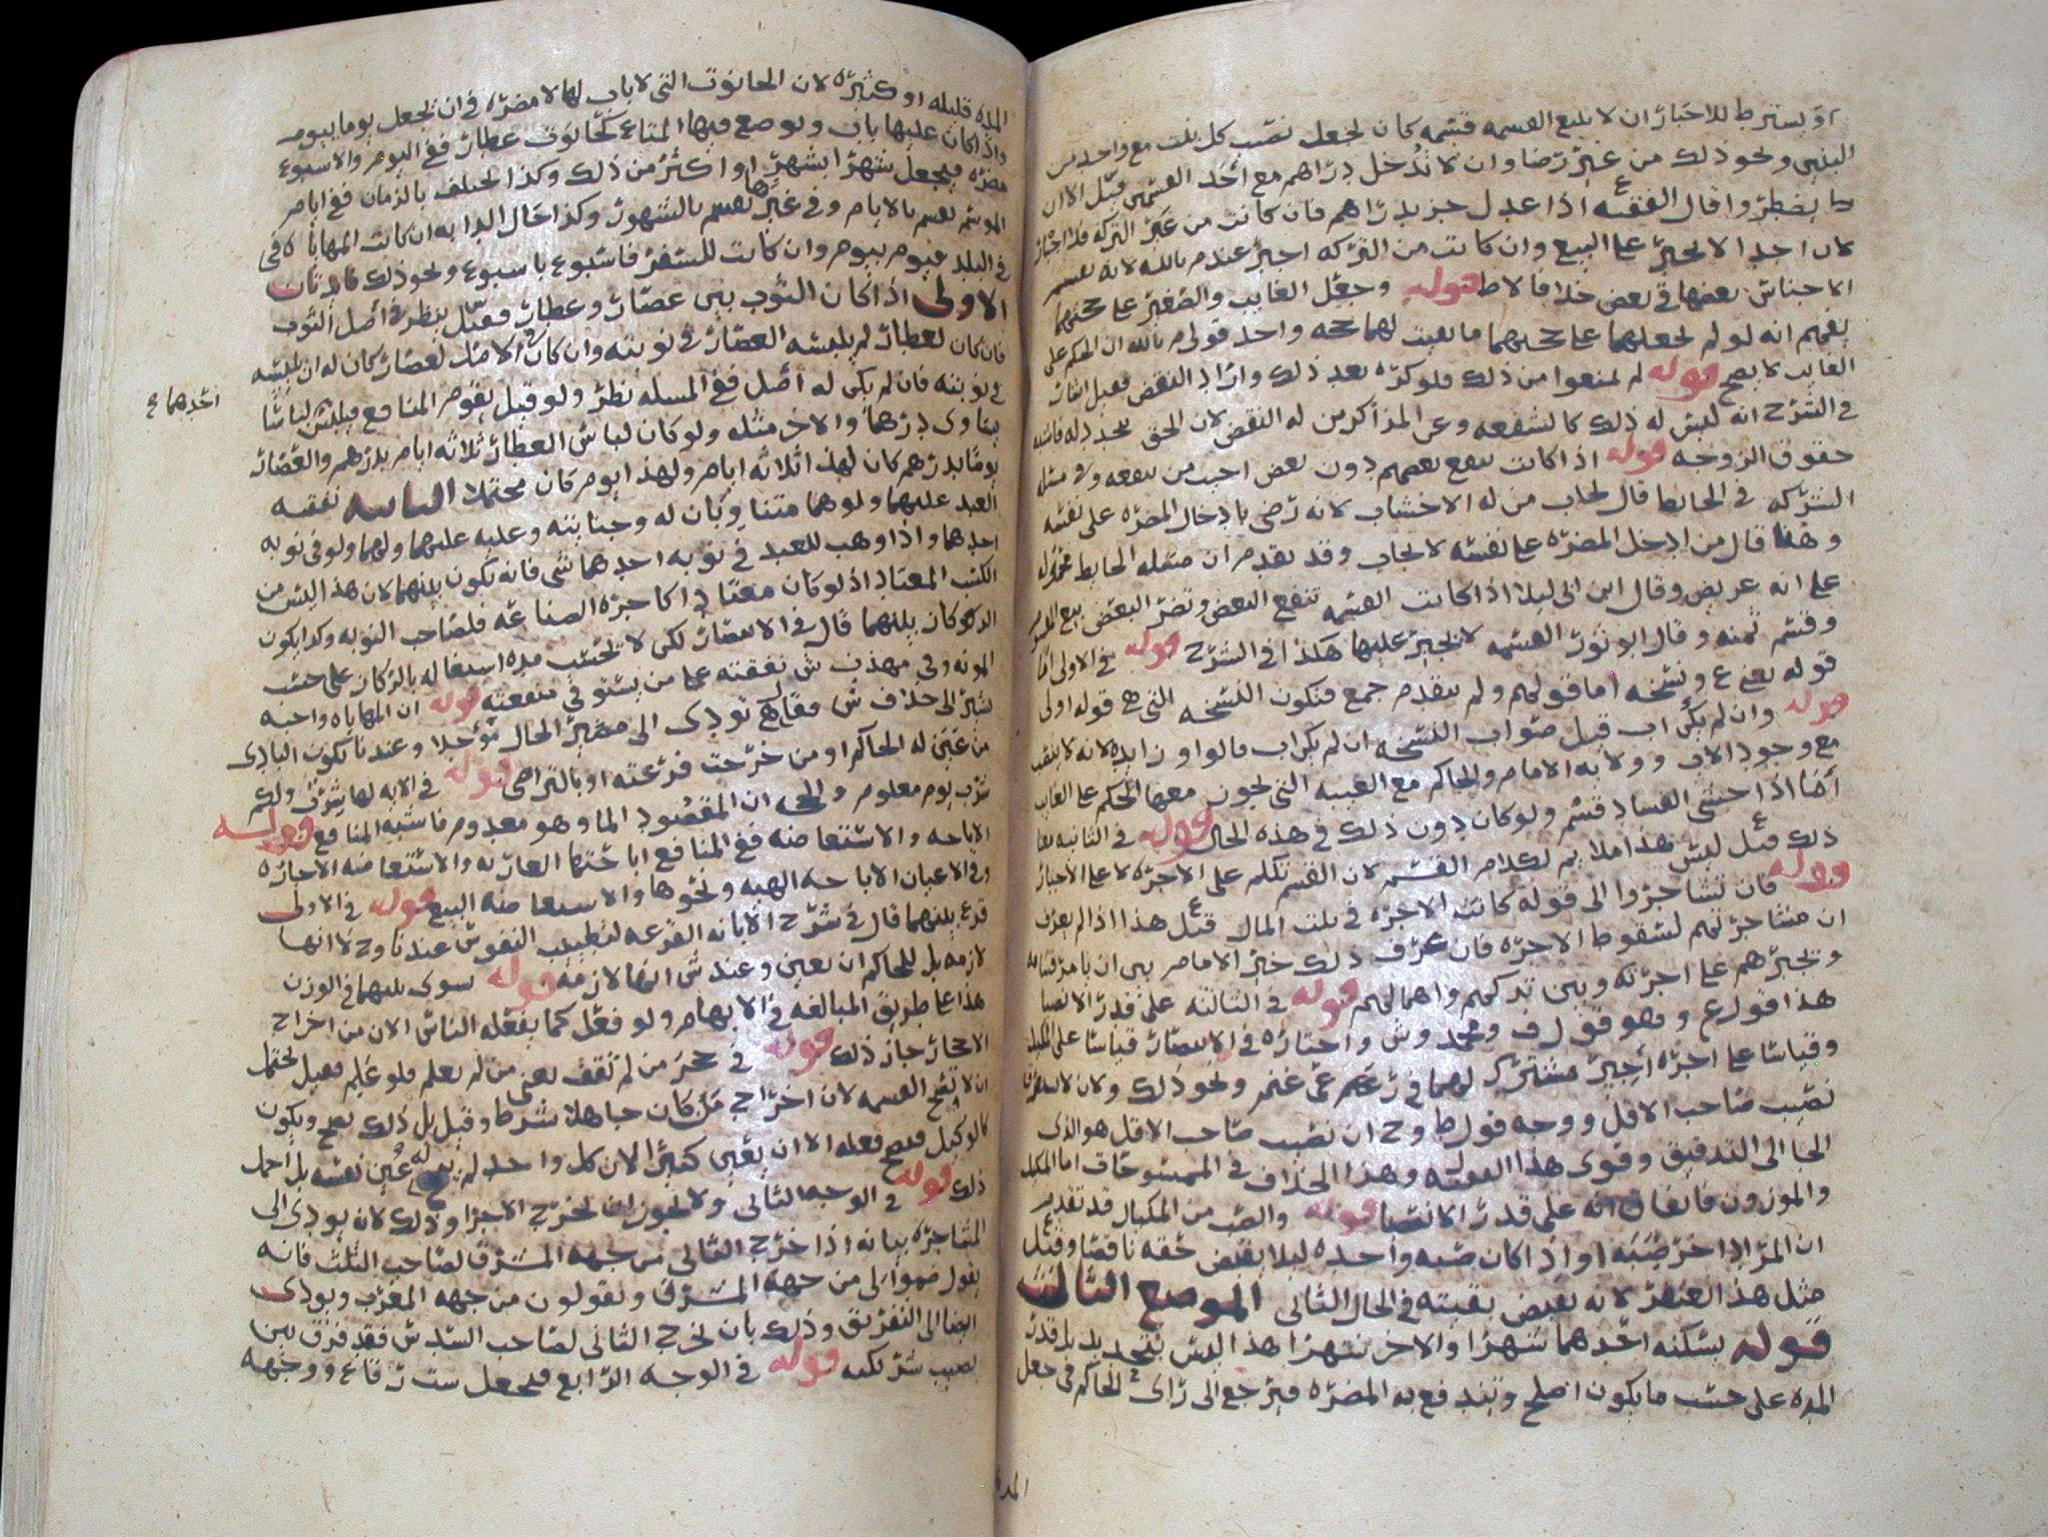 او يشترط للاخبار ان لا يتبع القسمه قسمه كان يجعل نصيب كل بنت مع واحد من
البنين ونحو ذلك من غير رضا وان لا ندخل دراهم مع احد القسمين قيل الا ان
يضطر وا قال الفقيه ع اذا عدل جز بدراهم فان كانت من غير التركه فلا اجبار
لان احدا لا يجبر على البيع وان كانت من التركه اجبر عند م بالله لانه يقسم
الاجناس بعضها في بعض خلافا لاط قوله وجعل الغايب والصغير على حقهما
يفهم انه لو لم يجعلهما على حقهما ما بقيت لهما حجه واحد قولى م بالله ان الحكم على
الغايب لا يصح قوله لم يمنعوا من ذلك فلو كره بعد ذلك واراد النقض فقيل
في الشرح انه ليس له ذلك كالشفعه وعن المذاكرين له النقض لان الحق يتجدد له فاشبه
حقوق الزوجه قوله اذا كانت تنفع بعضهم دون بعض اجيب من تنفعه وفي مسله
الشركه في الحايط قال يجاب من له الاخشاب لانه رضي بادخال المضره على نفسه
وهنا قال من ادخل المضره على نفسه لا يجاب وقد تقدم ان مسله الحايط محموله
على انه عريض وقال ابن ابى ليلا اذا كانت القسمه تنفع البعض وتضر البعض بيع
وقسم ثمنه وقال ابو ثور القسمه لا يجبر عليها هكذا في الشرح قوله في الاولى اما
قوله يعني ع ونسخه اما قولهم ولم يتقدم جمع فتكون النسخه التي هي قوله اولى
قوله وان لم يكن اب قيل صواب النسخه ان لم يكن اب فالواو زايده لانه لا
مع وجود الاب وولايه الامام والحاكم مع الغيبه التي يجوز معها الحكم على الغايب
ايضا اذا خشي الفساد قسم ولو كان دون ذلك في هذه الحال قوله في الثانيه
ذلك قيل ع ليس هذا ملايم لكلام القسم لان القسم تكلم على الاجره لا على الاجبار
قوله فان تشاجروا الى قوله كانت الاجره في بيت المال قيل ع هذا اذا لم يعرف
ان مشاجرتهم لسقوط الاجره فان عرف ذلك خير الامام بين ان يامر قساما
ويجبرهم على اجرته وبين تركهم واهمالهم قوله في الثالثه على قدر الانصبا
هذا قول ع وهو قول ف ومحمد وش واختاره في الانتصار قياسا على المكيل
وقياسا على اجره اجير مشترك لهما في رعيهم عن غنم ونحو ذلك ولان
نصيب صاحب الاقل ووجه قول ط وح ان نصيب صاحب الاقل هو الذي
الجا الى التدقيق وقوى هذا الفقيه وهذا الخلاف في الممسوحات اما المكيل
والموزون فاتفاق انه على قدر الانصبا قوله والصب من المكيال قد تقدم
ان المراد اخر صبه او اذا كان صبه واحده ليلا يقبض حقه ناقصا وقيل ع
مثل هذا العنصر لانه يقبض بقيته في الحال الثاني الموضع الثالث
قوله يسكنه احدهما شهرا والاخر شهرا هذا ليس بتحديد بل قدر
المده على حسب ما يكون اصلح وتندفع به المضره فيرجع الى راى الحاكم في جعل
المده
المده قليله او كثيره لان الحانوت التي لا باب لها لا مضره في ان يجعل يوما بيوم
واذا كان عليها باب ويوضع فيها المتاع كحانوت عطار ففي اليوم والاسبوع
مضره فيجعل شهرا بشهر او اكثر من ذلك وكذا يختلف بالزمان ففي ايام
الموسم يقسم بالايام وفي غيرها يقسم بالشهور وكذا حال الدابه ان كانت المهاياه في
في البلد فيوم بيوم وان كانت للسفر فاسبوع باسبوع ونحو ذلك فايدتان
الاولى اذا كان الثوب بين عصار وعطار فقيل ينظر في اصل الثوب
فان كان لعطار لم يلبسه العصار في نوبته وان كان في الاصل لعصار كان له ان يلبسه
في نوبته فان لم يكن له اصل ففي المسله نظر ولو قيل يقوم المنافع فيلبس احدهما ع لباسا
يساوى درهما والاخر مثله ولو كان لباس العطار ثلاثه ايام بدرهم والعصار
يوما بدرهم كان لهذا ثلاثه ايام ولهذا يوم كان محتملا الثانيه نفقه
العبد عليهما ولو هما متناوبان له وجنايته وعليه عليهما ولهما ولو في نوبه
احدهما واذا وهب للعبد في نوبه احدهما شي فانه يكون بينهما لان هذا ليس من
الكسب المعتاد اذ لو كان معتادا كاجره الصناعه فلصاحب النوبه وكذا يكون
الركاز بينهما قال في الانتصار لكن لا تحتسب مده اشتغاله بالركاز على حسب
المونه وفي مهذب ش نفقته على من يستوفي منفعته قوله ان المهاياه واجبه
يشير الى خلاف ش فقال هي تودى الى مصير الحال مؤجلا وعندنا يكون البادى
من عين له الحاكم او من خرجت قرعته او بالتراضي قوله في الايه لها شرب ولكم
شرب يوم معلوم والجمع ان المقصود الما وهو معدوم فاشبه المنافع قوله
الاباحه والاستعاضه ففي المنافع اباحتها العاريه والاستعاضه الاجاره
وفي الاعيان الاباحه الهبه ونحوها والاستعاضه البيع قوله في الاولى
قرع بينهما قال في شرح الابانه القرعه لتطييب النفوس عندنا وح لا انها
لازمه بل للحاكم ان يعين وعند ش انها لازمه قوله سوى بينهما في الوزن
هذا على طريق المبالغه في الابهام ولو فعل كما يفعله الناس الان من اخراج
الاحجار جاز ذلك قوله في حجر من لم يقف يعني من لم يعلم فلو علم فقيل يحتمل
ان لا تصح القسمه لان اخراج من كان جاهلا شرط وقيل بل ذلك يصح ويكون
كالوكيل فيصح فعله الا ان يغبن كثيرا لان كل واحد له غبن نفسه بل احمل
ذلك قوله في الوجه الثاني ولا يجوز ان يخرج الاجزا وذلك لانه يودى الى
المشاجره بيانه اذا خرج الثاني من جهه المشرق لصاحب الثلث فانه
يقول ضموا لي من جهه المشرق ويقولون من جهه المغرب ويودى
ايضا الى التفريق وذلك بان يخرج الثاني لصاحب السدس فقد فرق بين
نصيب شريكيه قوله في الوجه الرابع فيجعل ست رقاع ووجهه